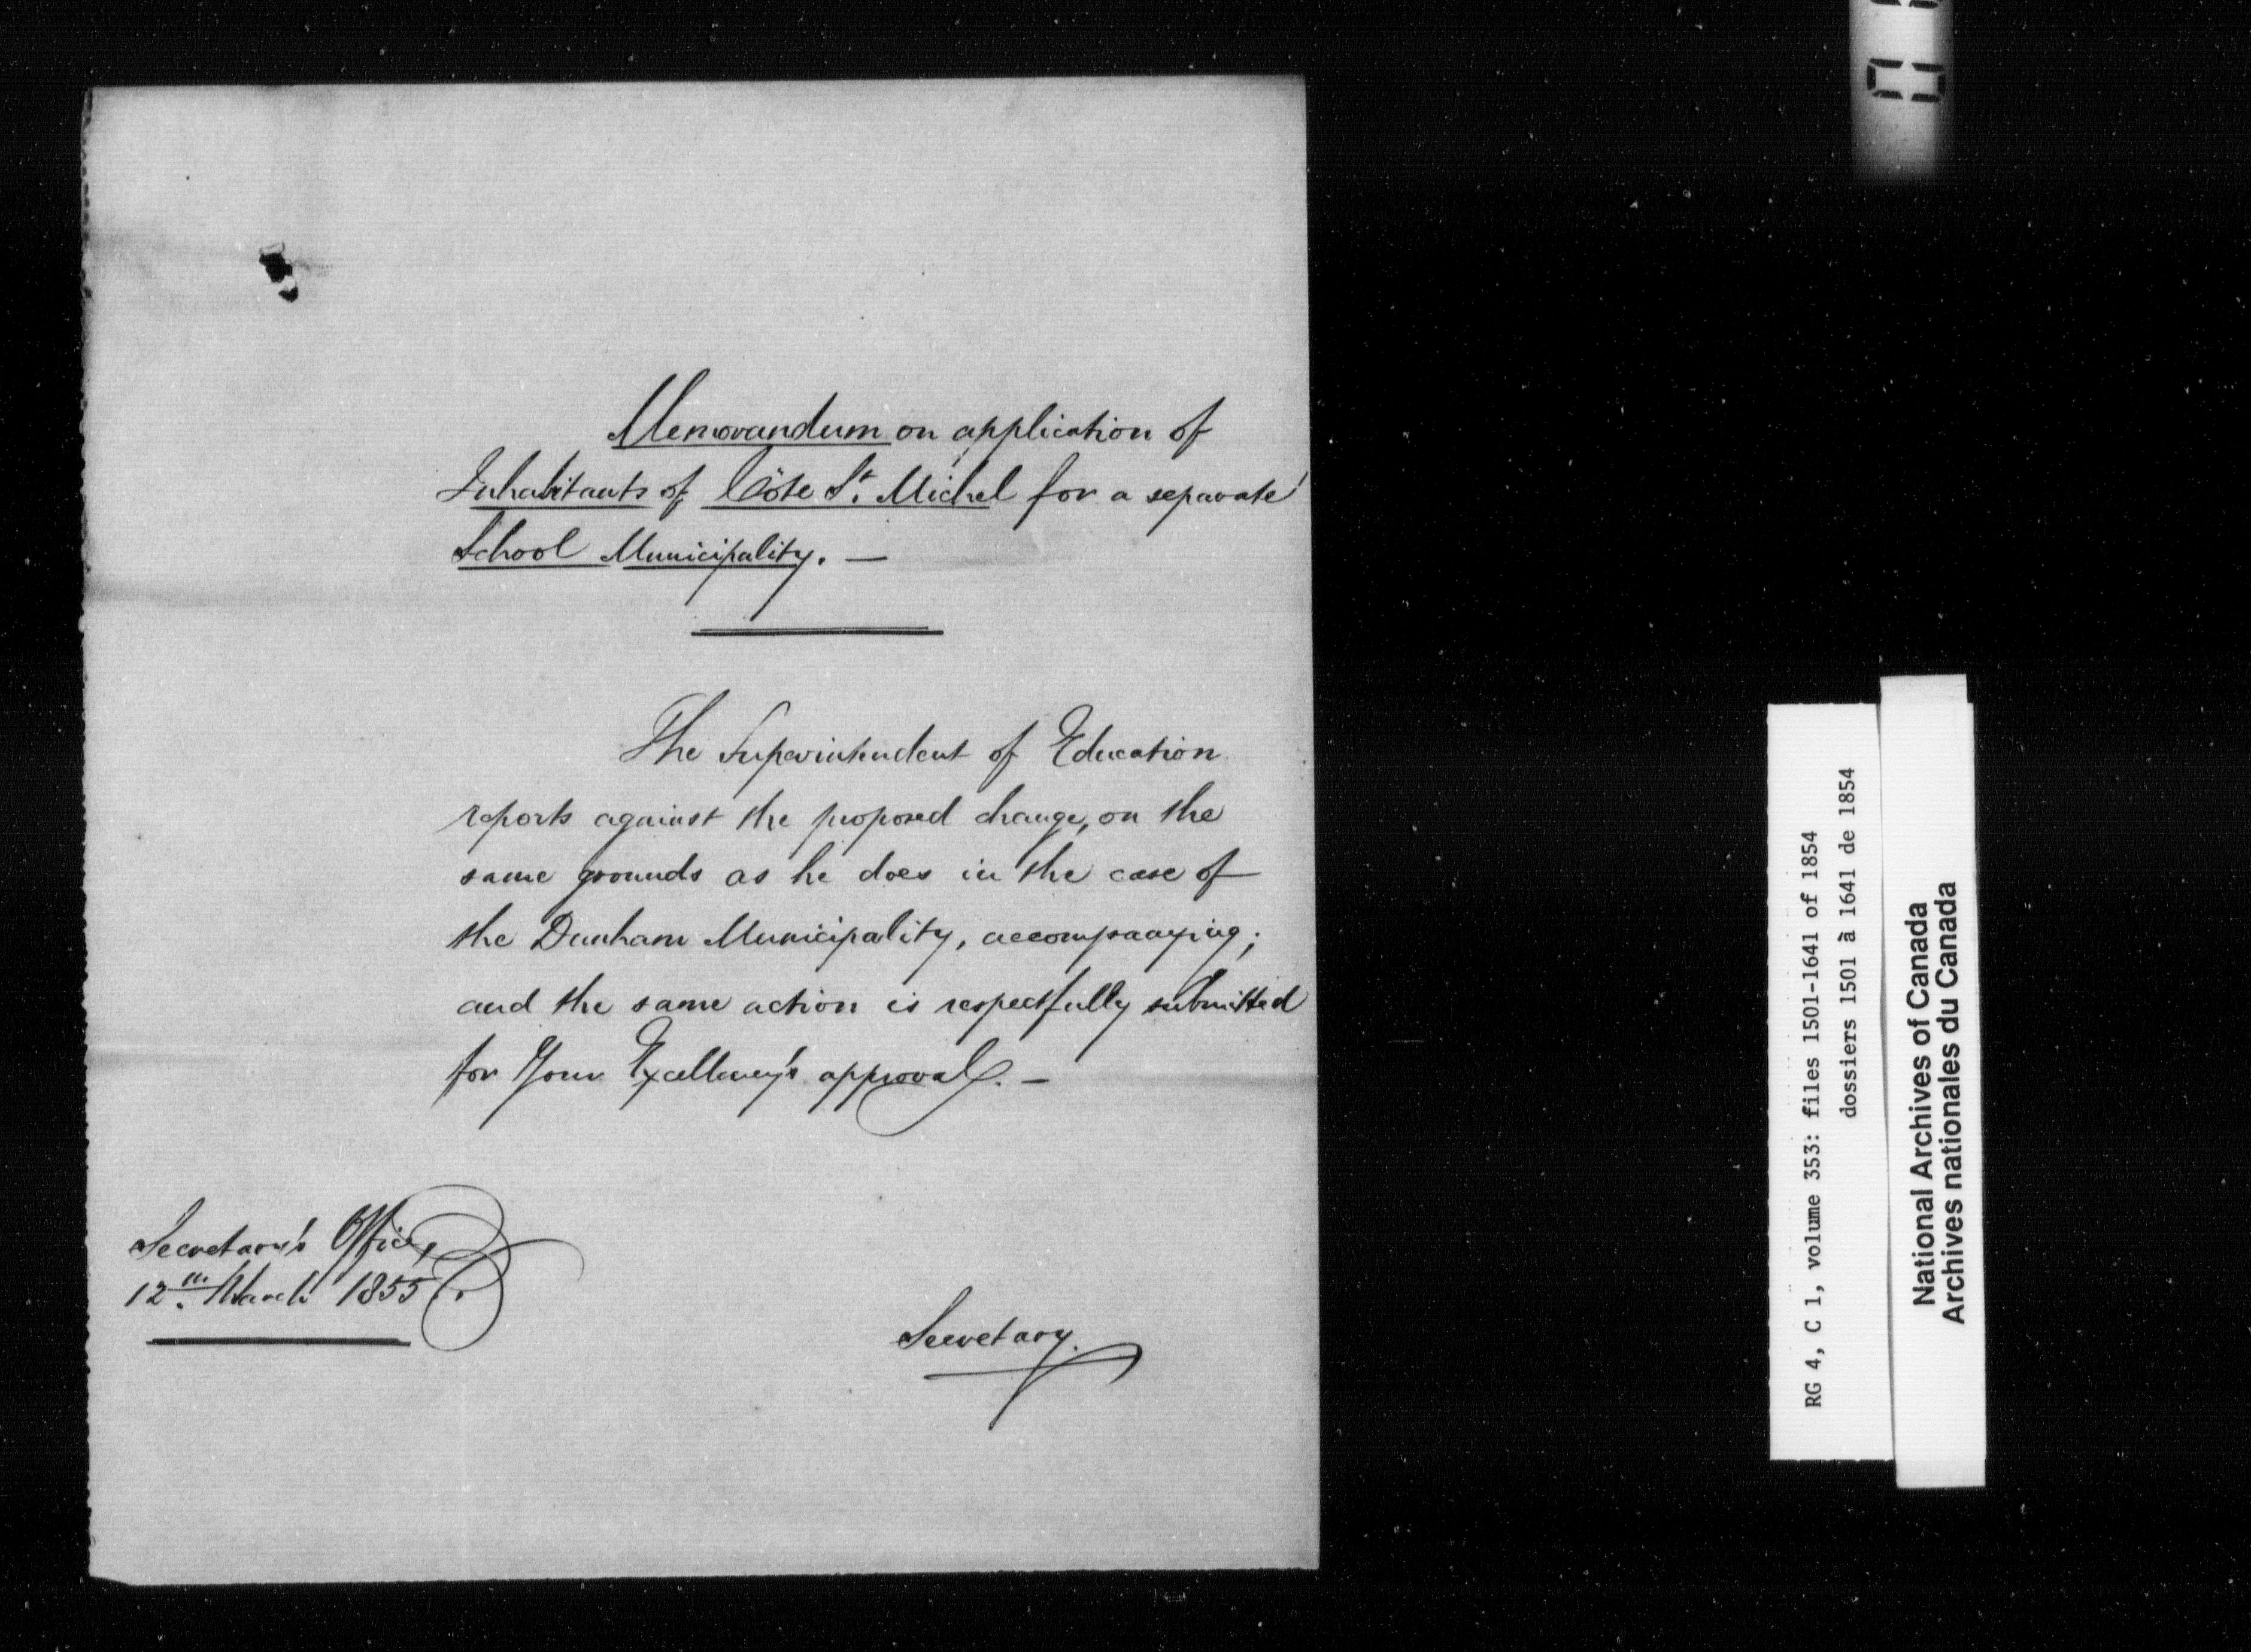 Memorandum on application of
Inhabitants of Côte St. Michel for a separate
School Municipality. —
The Superintendent of Education
reports against the proposed change, on the
same grounds as he does in the case of
the Dunham Municipality, accompanying;
and the same action is respectfully submitted
for Your Excellency's approval. —
Secretary's Office,
12th. March 1855.
Secretary.
RG 4, C 1, volume 353: files 1501-1641 of 1854
dossiers 1501 à 1641 de 1854
National Archives of Canada
Archives nationales du Canada